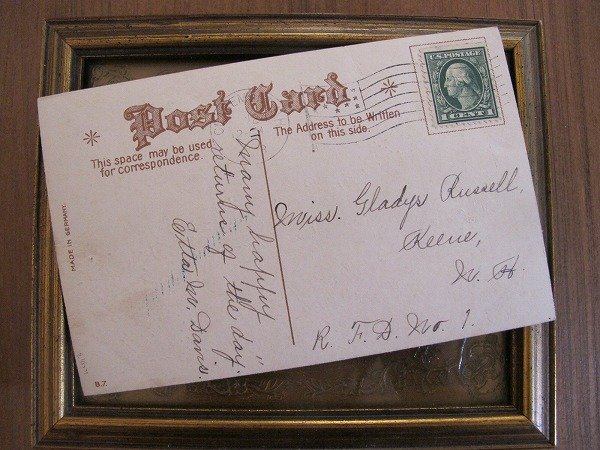 Post Card
This space may be used
for correspondence.
The Address to be Written
on this side.
U.S. POSTAGE
1 CENT 1
Many happy
returns of
the day."
Etta M. Davis.
Miss. Gladys Russell,
Keene,
N. H.
R. F. D. No. 1.
MADE IN GERMANY.
B.7.